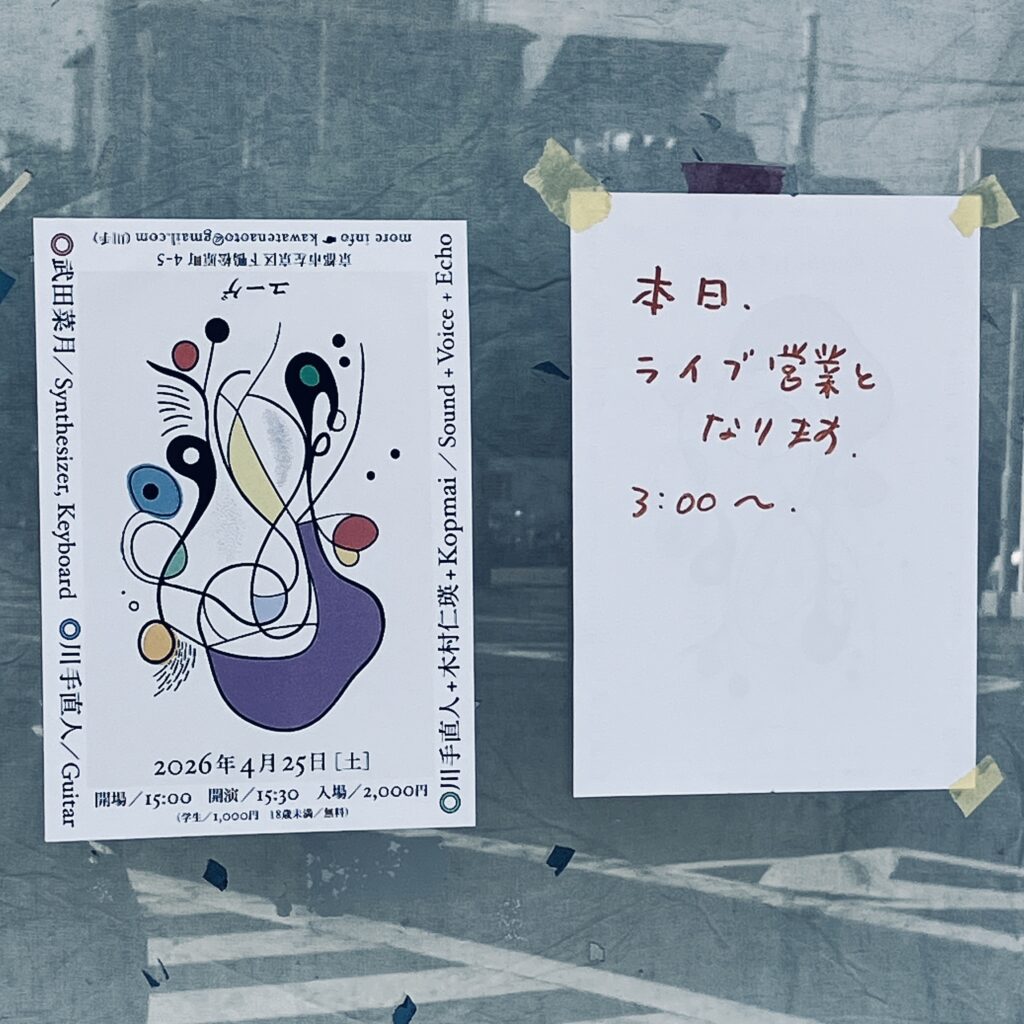 more info ☛ kawatenaoto@gmail.com (川手)
京都市左京区下鴨松原町4-5
ユーゲ
武田菜月／Synthesizer, Keyboard
川手直人／Guitar
川手直人+木村仁瑛+Kopmai／Sound + Voice + Echo
2026年4月25日［土］
開場／15:00 開演／15:30 入場／2,000円
(学生／1,000円 18歳未満／無料)
本日、
ライブ営業と
なります。
3:00〜.